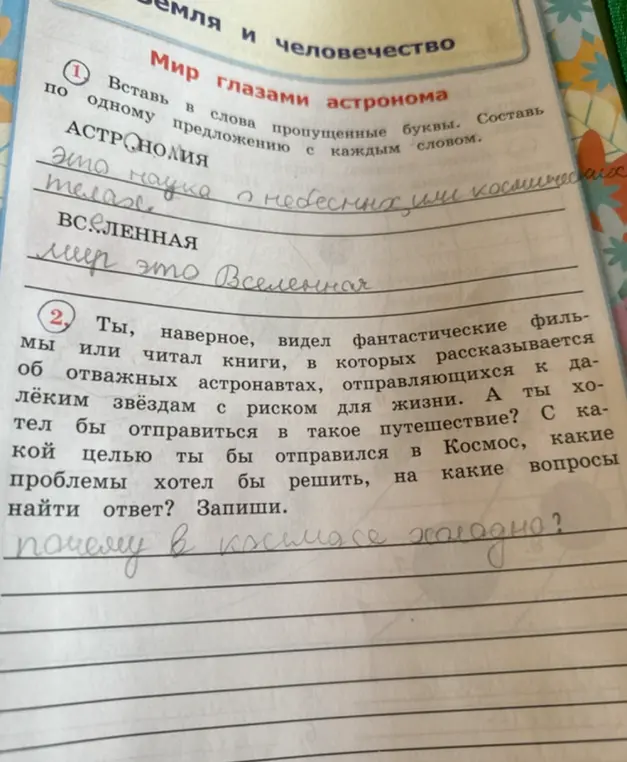 Земля и человечество
Мир глазами астронома
1. Вставь в слова пропущенные буквы. Составь
по одному предложению с каждым словом.
АСТРОНОМИЯ
это наука о небесных, или космических
телах.
ВСЕЛЕННАЯ
мир это Вселенная
2. Ты, наверное, видел фантастические филь-
мы или читал книги, в которых рассказывается
об отважных астронавтах, отправляющихся к да-
лёким звёздам с риском для жизни. А ты хо-
тел бы отправиться в такое путешествие? С ка-
кой целью ты бы отправился в Космос, какие
проблемы хотел бы решить, на какие вопросы
найти ответ? Запиши.
почему в космасе халадно?